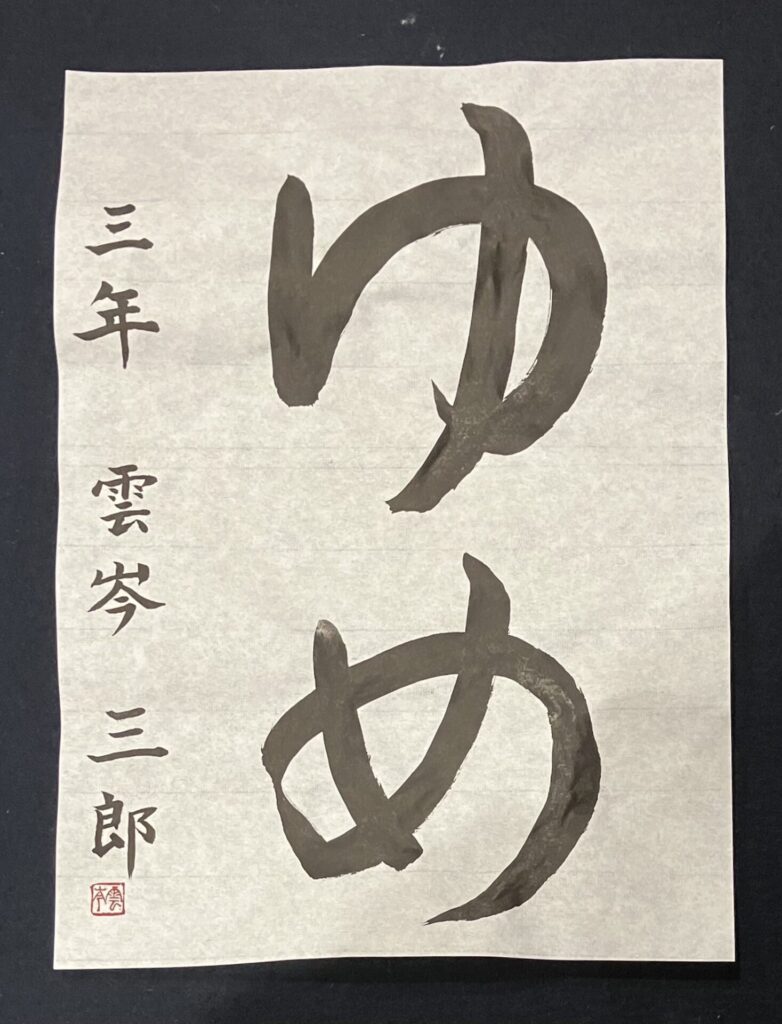 ゆめ
三年 雲岑 三郎
雲岑